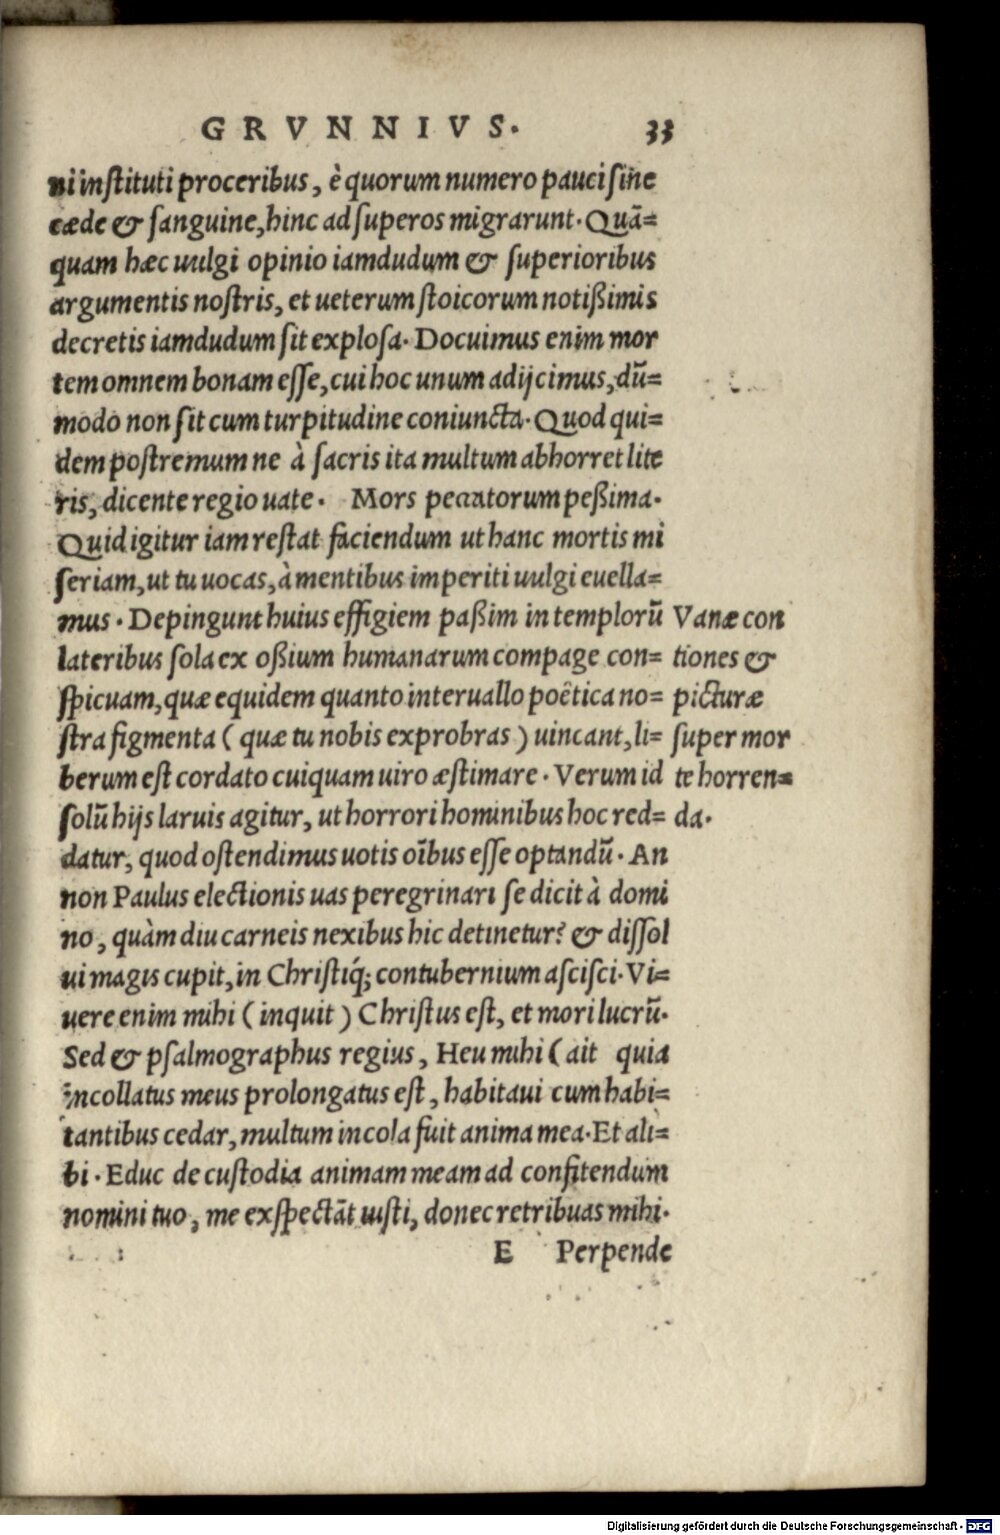 GRVNNIVS. 33
ni instituti proceribus, è quorum numero pauci sine
cæde & sanguine, hinc ad superos migrarunt. Quã=
quam hæc uulgi opinio iamdudum & superioribus
argumentis nostris, et ueterum stoicorum notißimis
decretis iamdudum sit explosa. Docuimus enim mor
tem omnem bonam esse, cui hoc unum adijcimus, dũ=
modo non sit cum turpitudine coniuncta. Quod qui=
dem postremum ne à sacris ita multum abhorret lite
ris, dicente regio uate. Mors peccatorum peßima.
Quid igitur iam restat faciendum ut hanc mortis mi
seriam, ut tu uocas, à mentibus imperiti uulgi euella=
mus. Depingunt huius effigiem paßim in templorũ
lateribus sola ex oßium humanarum compage con=
spicuam, quæ equidem quanto interuallo poëtica no=
stra figmenta (quæ tu nobis exprobras) uincant, li=
berum est cordato cuiquam uiro æstimare. Verum id
solũ hijs laruis agitur, ut horrori hominibus hoc red=
datur, quod ostendimus uotis oĩbus esse optandũ. An
non Paulus electionis uas peregrinari se dicit à domi
no, quàm diu carneis nexibus hic detinetur? & dissol
ui magis cupit, in Christiq́; contubernium ascisci. Vi=
uere enim mihi (inquit) Christus est, et mori lucrũ.
Sed & psalmographus regius, Heu mihi (ait quia
incollatus meus prolongatus est, habitaui cum habi=
tantibus cedar, multum incola fuit anima mea. Et ali=
bi. Educ de custodia animam meam ad confitendum
nomini tuo, me exspectãt iusti, donec retribuas mihi.
E Perpende
Vanæ con
tiones &
picturæ
super mor
te horren=
da.
Digitalisierung gefördert durch die Deutsche Forschungsgemeinschaft - DFG